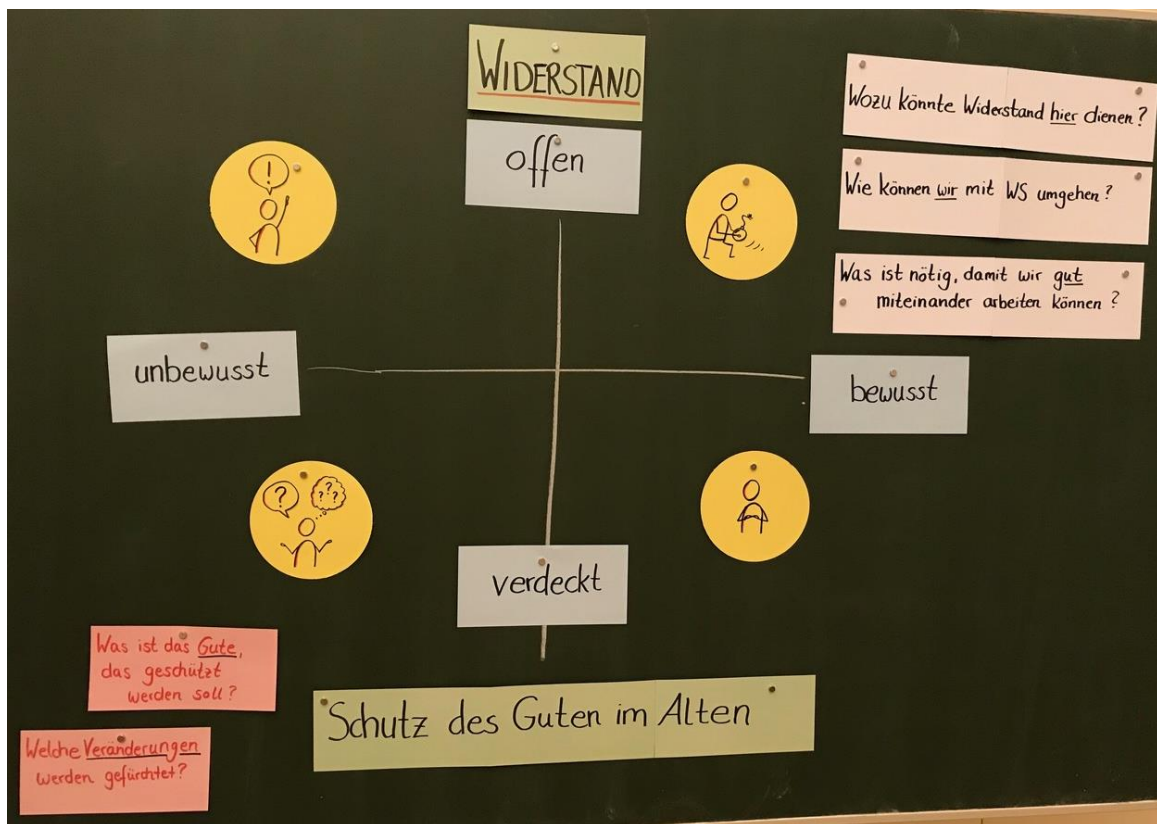 WIDERSTAND
offen
!
Wozu könnte Widerstand hier dienen?
Wie können wir mit WS umgehen?
Was ist nötig, damit wir gut
miteinander arbeiten können?
unbewusst
bewusst
?
? ? ?
verdeckt
Was ist das Gute,
das geschützt
werden soll?
Schutz des Guten im Alten
Welche Veränderungen
werden gefürchtet?